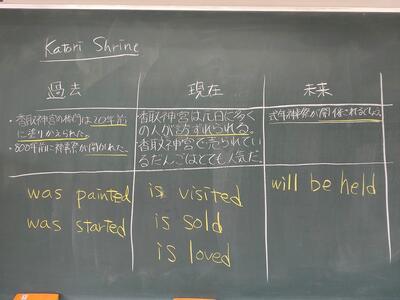 Katori Shrine
過去
現在
未来
・香取神宮の楼門は20年前
に塗りかえられた。
・800年前に神幸祭が開かれた。
香取神宮は元日に多く
の人が訪ずれられる。
香取神宮で売られてい
るだんごはとても人気だ。
式年神幸祭が開催されるでしょう。
was painted
was started
is visited
is sold
is loved
will be held